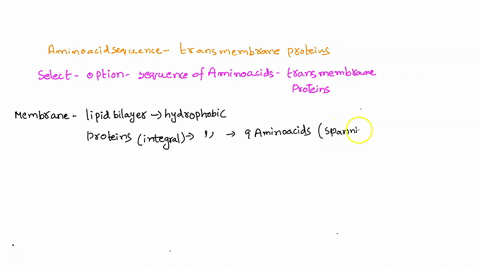 Aminoacid sequence - transmembrane proteins
Select - option - sequence of Aminoacids - transmembrane
Proteins
Membrane - lipid bilayer → hydrophobic
Proteins (integral) → ,, → 9 Aminoacids (spanni